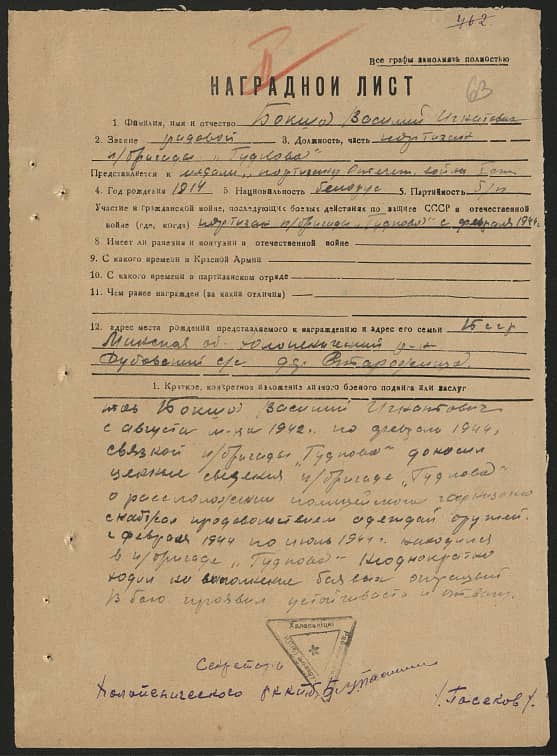 462
Все графы заполнять полностью
63
НАГРАДНОЙ ЛИСТ
1. Фамилия, имя и отчество Бокшой Василий Игнатович
2. Звание рядовой 3. Должность, часть партизан
п/бригады "Гудкова"
Представляется к медали "партизану Отечест. войны I ст
4. Год рождения 1914 5. Национальность белорус 5. Партийность б/п
Участие в гражданской войне, последующих боевых действиях по защите СССР и отечественной
войне (где, когда) партизан п/бригады "Гудкова" с февраля 1944г
8 Имеет ли ранения и контузии в отечественной войне
9. С какого времени в Красной Армии
10. С какого времени в партизанском отряде
11. Чем ранее награжден (за какия отличия)
12. адрес места рождения представляемого к награждению и адрес его семьи БССР
Минская об. Холопеничский р-н
Дубовский с/с д.
1. Краткое, конкретное изложение личного боевого подвига или заслуг
тов Бокшой Василий Игнатович
с августа м-ца 1942г. по февраль 1944г.
связной п/бригады "Гудкова" доносил
ценные сведения п/бригаде "Гудкова"
о расположении полицейского гарнизона
снабжал продовольствием одеждай оружей.
с февраля 1944 по июль 1944г. находился
в п/бригаде "Гудкова" Неоднократно
ходил на выполнение боевых операций
В бою проявил устойчивасть и отвагу.
Секретарь
Холопеничского РККПб /Гасеков/.